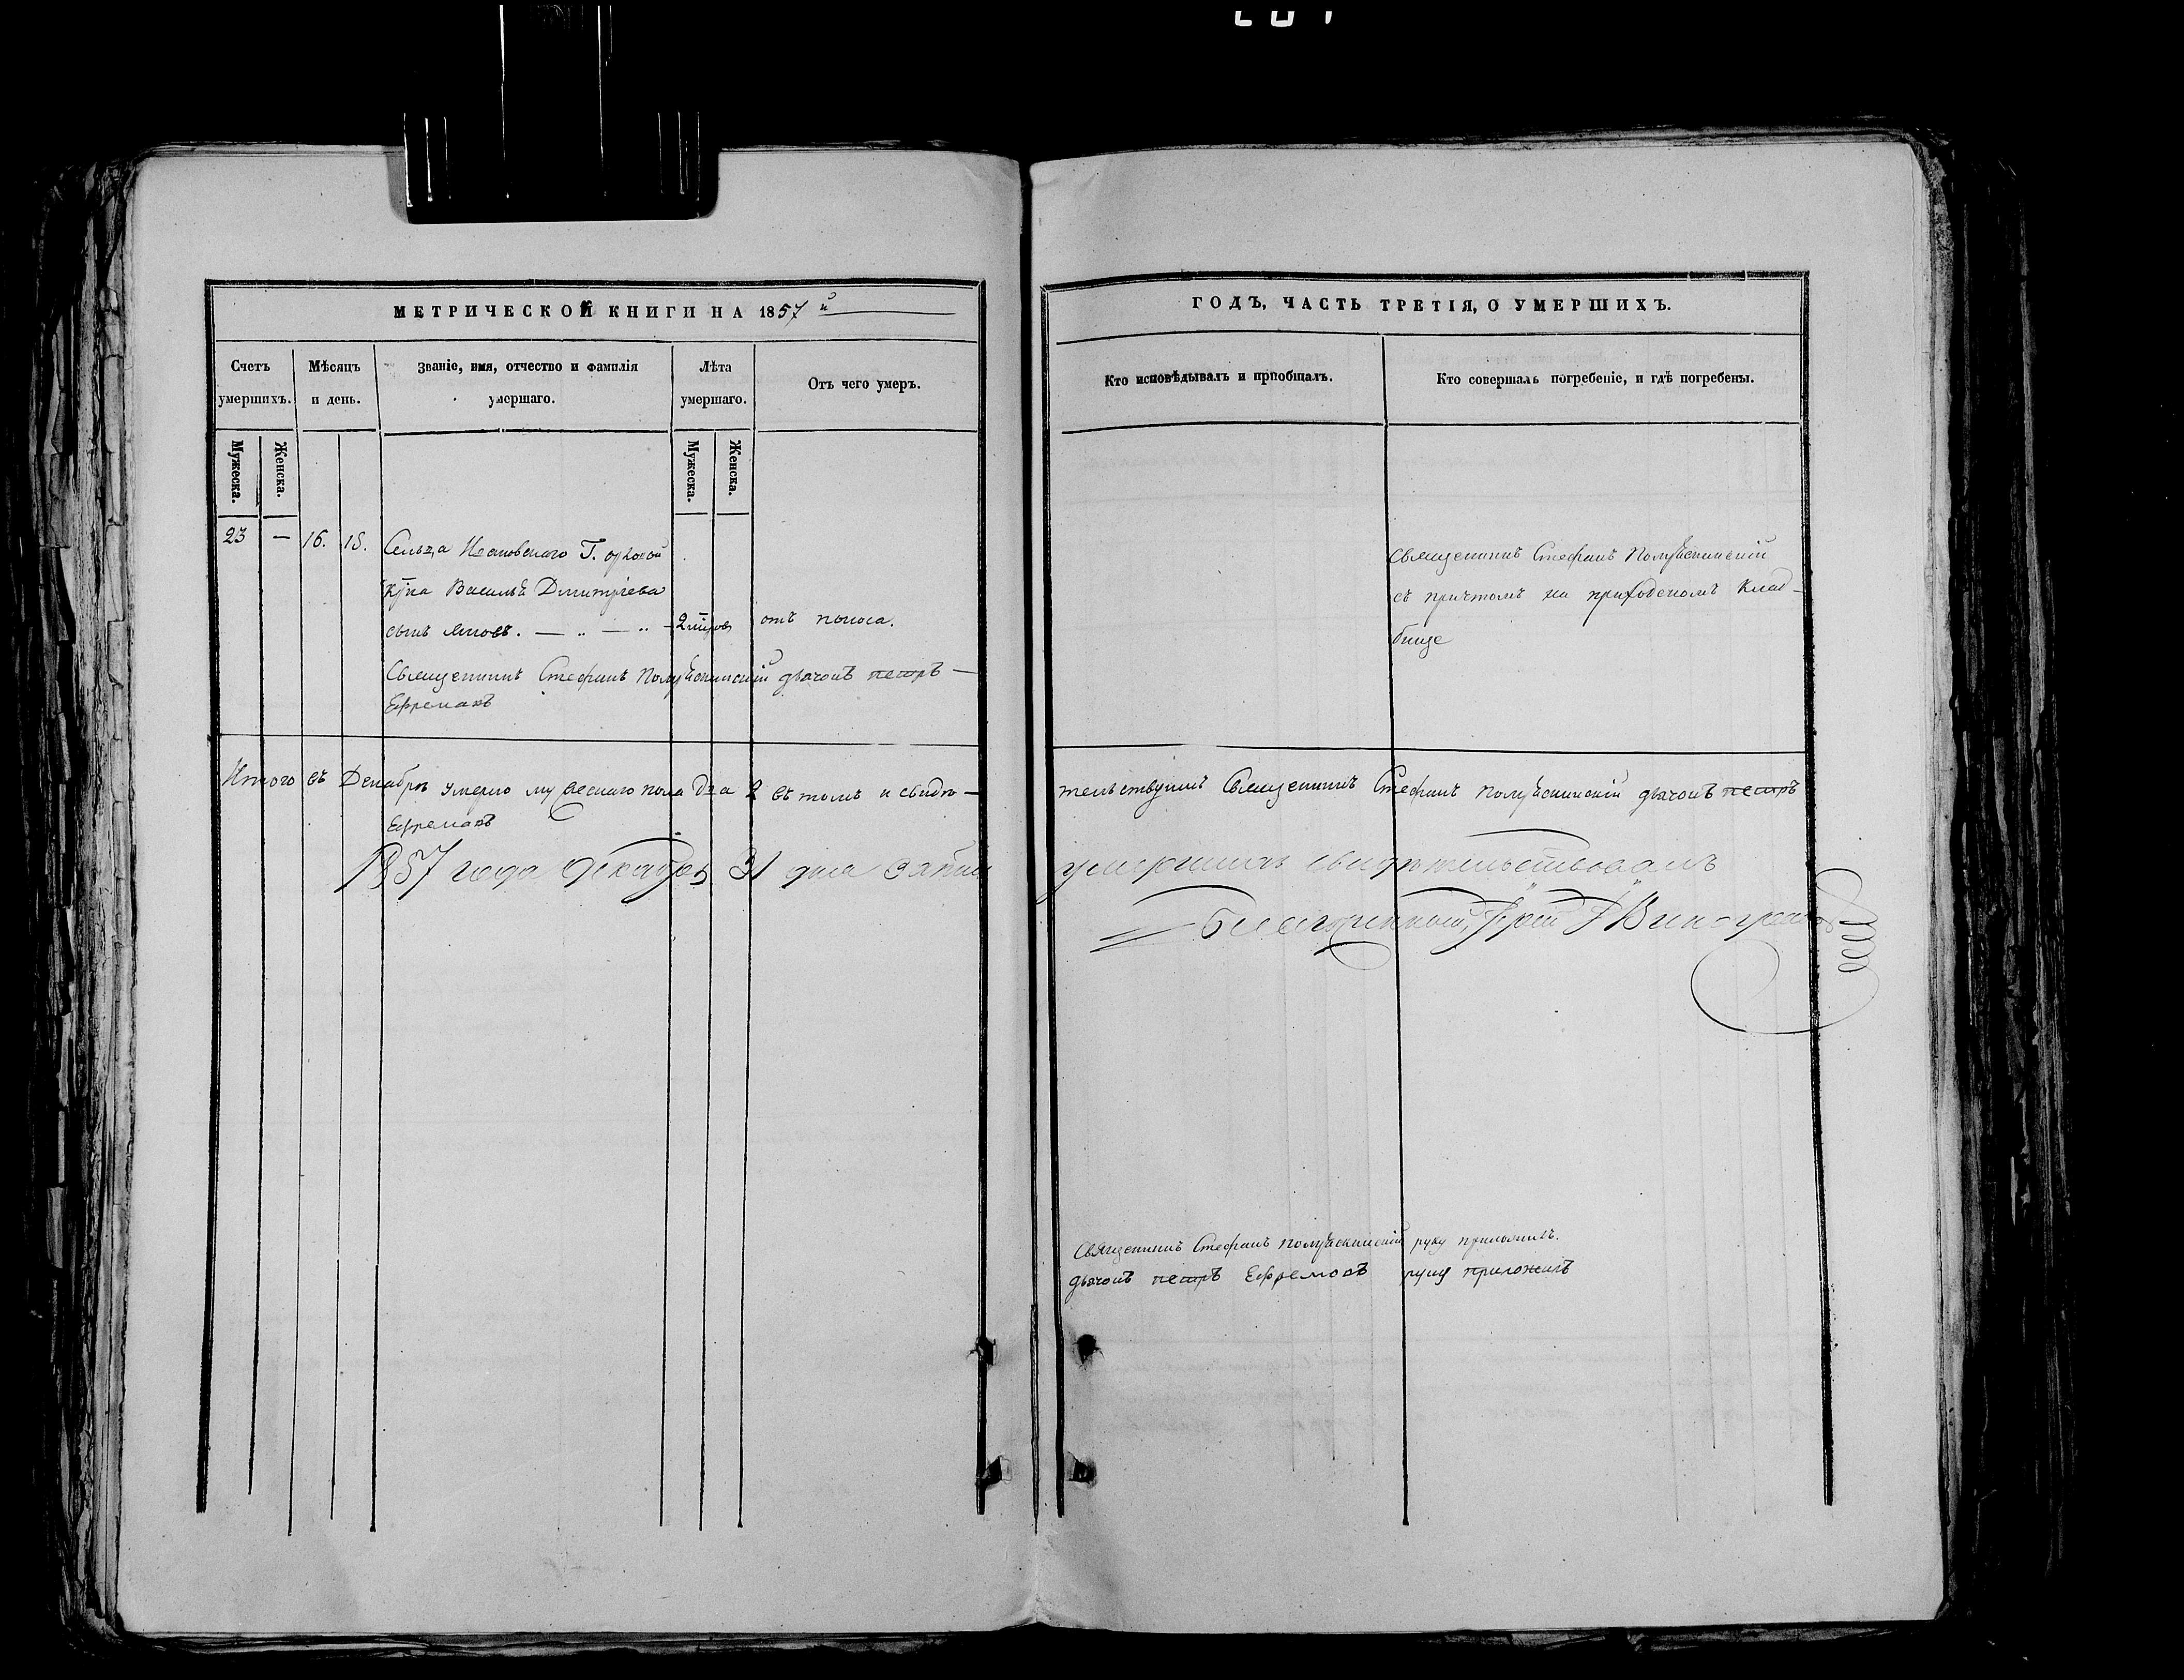 МЕТРИЧЕСКОЙ КНИГИ НА 1857й
Счетъ умершихъ.
Мѣсяцъ и день.
Званіе, имя, отчество и фамилія умершаго.
Лѣта умершаго.
Отъ чего умеръ.
Мужеска.
Женска.
Мужеска.
Женска.
23 — 16. 18. Сельца Ивановскаго Г.
Василья Дмитріева
сынъ Яковъ. — „ — „ — 2 отъ поноса.
Священникъ Стефанъ дьячокъ петръ —
Ефремовъ
Итого въ Декабрѣ умерло мужескаго пола два 2 въ томъ и свидѣ—
Ефремовъ
1857 года Декабря 31 дня запись
ГОДЪ, ЧАСТЬ ТРЕТІЯ, О УМЕРШИХЪ.
Кто исповѣдывалъ и пріобщалъ.
Кто совершалъ погребеніе, и гдѣ погребены.
Священникъ Стефанъ
съ причтомъ на приходскомъ клад—
бище
тельствуемъ Священникъ Стефанъ дьячокъ петръ
умершихъ свидѣтельствовалъ
Благочинный, Виноградовъ
Священникъ Стефанъ руку приложилъ.
дьячокъ петръ Ефремовъ руку приложилъ